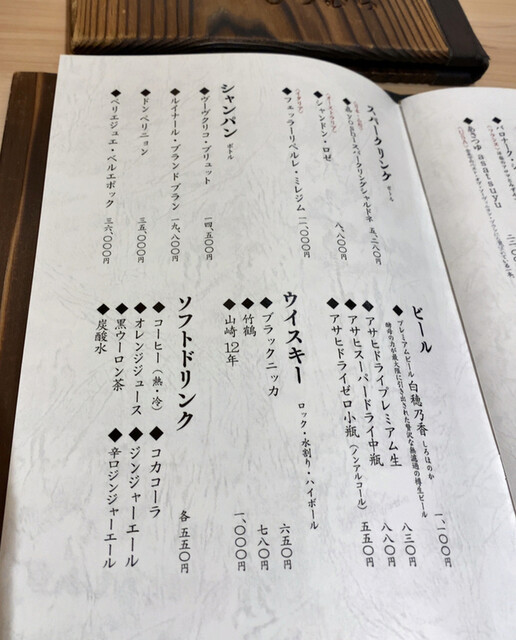 スパークリング ボトル
◆&yoshi スパークリングシャルドネ 五、二八〇円
◆シャンドン・ロゼ 八、八〇〇円
◆フェッラーリペルレ・ミレジム 一一、〇〇〇円
シャンパン ボトル
◆ヴーヴクリコ・ブリュット 一四、五〇〇円
◆ルイナール・ブランドブラン 一九、八〇〇円
◆ドンペリニヨン 三五、〇〇〇円
◆ペリエジュエ・ベルエポック 三六、〇〇〇円
ビール
◆プレミアムビール 白穂乃香 しろほのか 一、一〇〇円
酵母の力が最大限に引き出された贅沢な無濾過の樽生ビール
◆アサヒドライプレミアム生 八三〇円
◆アサヒスーパードライ中瓶 八八〇円
◆アサヒドライゼロ小瓶(ノンアルコール) 五五〇円
ウイスキー ロック・水割り・ハイボール
◆ブラックニッカ 六五〇円
◆竹鶴 七八〇円
◆山崎12年 一、〇〇〇円
ソフトドリンク 各 五五〇円
◆コーヒー(熱・冷)
◆オレンジジュース
◆黒ウーロン茶
◆炭酸水
◆コカコーラ
◆ジンジャーエール
◆辛口ジンジャーエール
◆あさつゆ asatsuyu